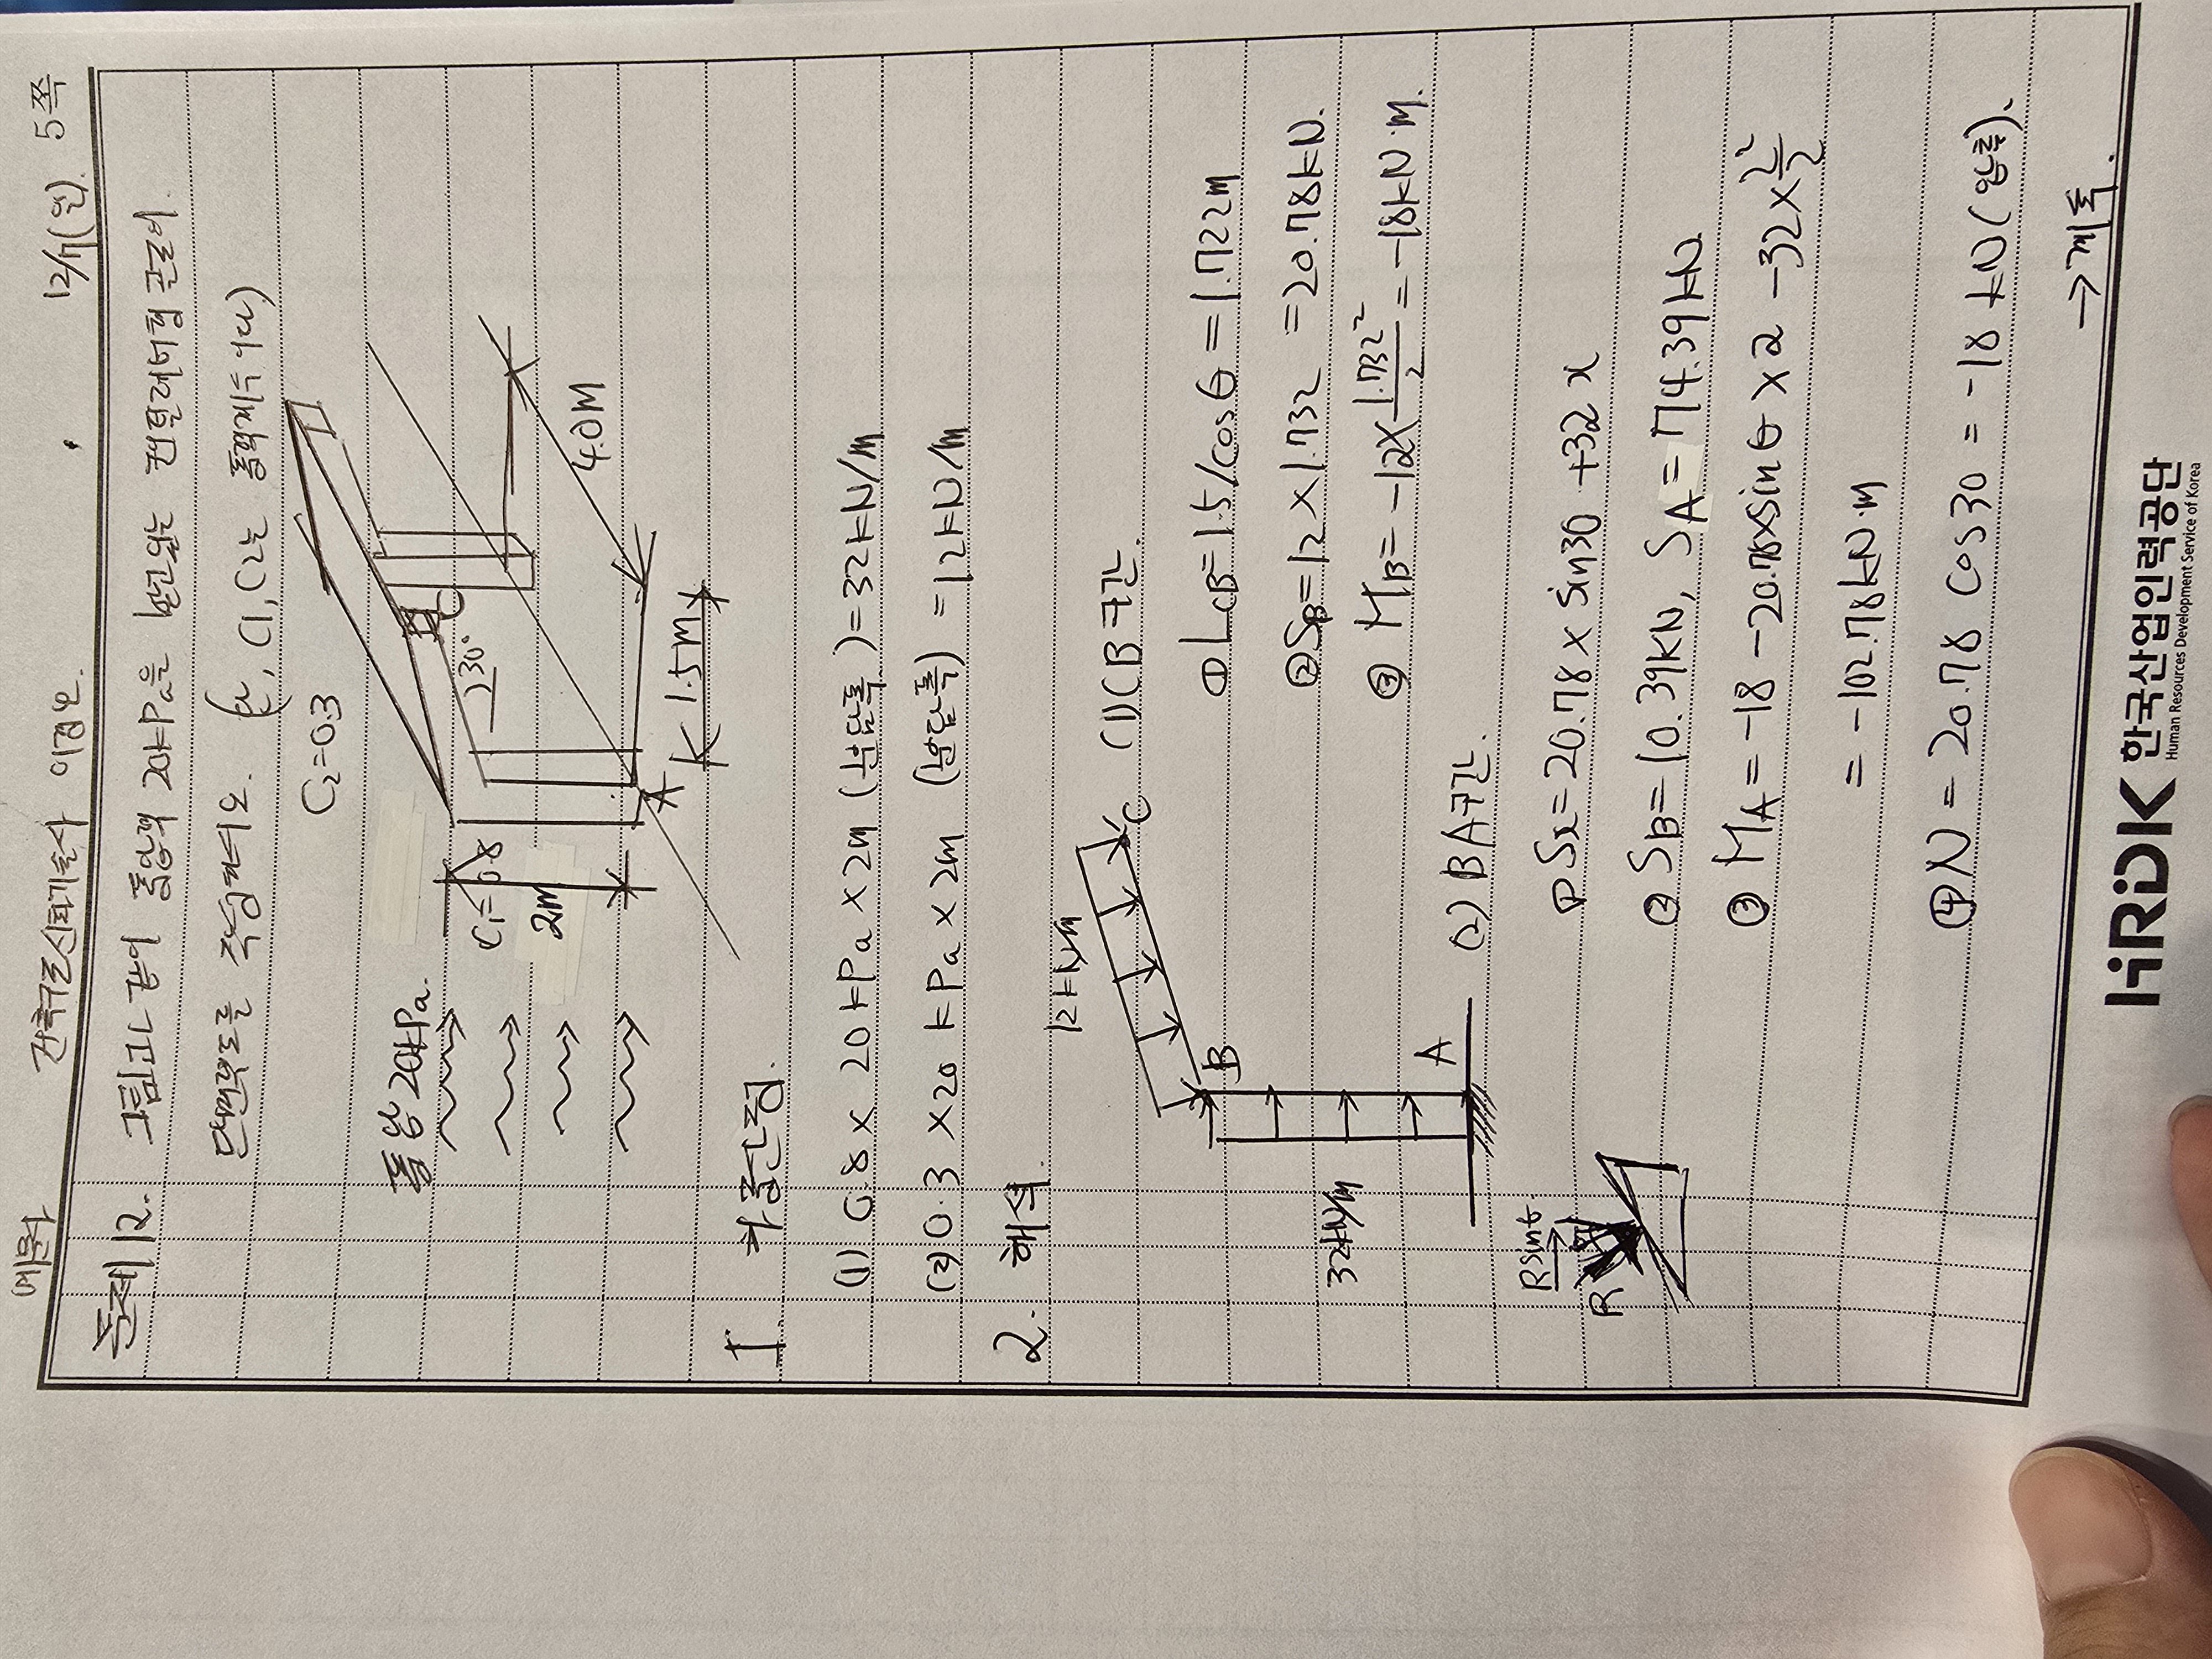 예문사 건축구조기술사 이정오. 12/7(일). 5쪽
문제12. 그림과 같이 풍압력 20kPa을 받고있는 캔틸레버형 골조의
단면력도를 작성하시오. (단, C1, C2는 풍력계수이다)
C₂=0.3
풍압 20kPa.
C₁=0.8
30°
C
2m
4.0M
A
1.5M
1. 하중산정.
(1) 0.8 × 20kPa × 2m (부담폭) = 32kN/m
(2) 0.3 × 20kPa × 2m (부담폭) = 12kN/m
2. 해석.
12kN/m
C
B
32kN/m
A
(1) CB구간.
① LCB = 1.5/cosθ = 1.722m
② SB = 12 × 1.732 = 20.78kN.
③ MB = -12 × 1.732²/2 = -18kN·m.
(2) BA구간.
① Sx = 20.78 × sin30 + 32x
② SB = 10.39kN, SA = 74.39kN
③ MA = -18 - 20.78×sinθ×2 - 32×2²/2
= -102.78kN·m
④ N = 20.78 cos30 = -18kN (압축).
Rsinθ
R
→계속.
HRDK 한국산업인력공단
Human Resources Development Service of Korea